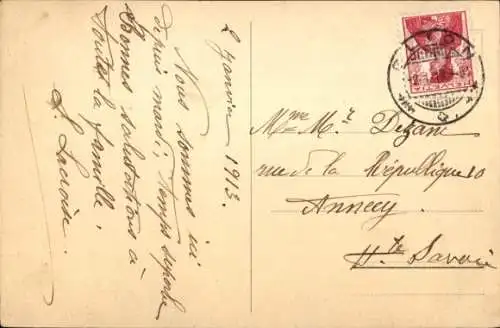 2 Janvier 1913.
Nous sommes ici
depuis mardi; Temps superbe
Bonnes salutations à
toute la famille.
L. Lacroix.
Mme Mr Dezani
rue de la République 10
Annecy
Hte Savoie